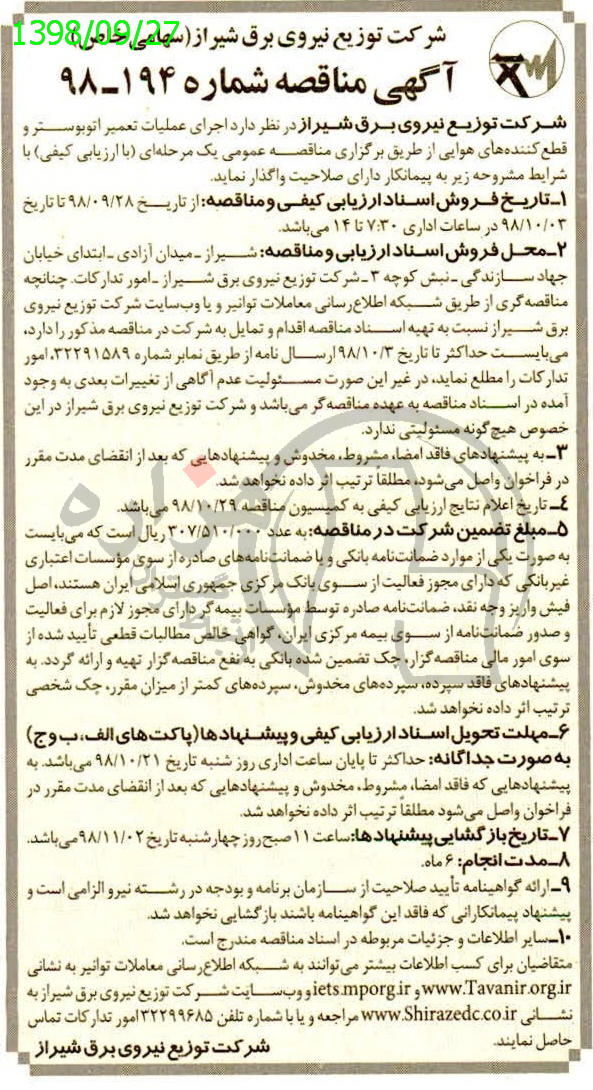 1398/09/27
شرکت توزیع نیروی برق شیراز (سهامی خاص)
آگهی مناقصه شماره ۱۹۴-۹۸
شرکت توزیع نیروی برق شیراز در نظر دارد اجرای عملیات تعمیر اتوبوستر و
قطع کننده‌های هوایی از طریق برگزاری مناقصه عمومی یک مرحله‌ای (با ارزیابی کیفی) با
شرایط مشروحه زیر به پیمانکار دارای صلاحیت واگذار نماید.
۱-تاریخ فروش اسناد ارزیابی کیفی و مناقصه: از تاریخ ۹۸/۰۹/۲۸ تا تاریخ
۹۸/۱۰/۰۳ در ساعات اداری ۷:۳۰ تا ۱۴ می‌باشد.
۲-محل فروش اسناد ارزیابی و مناقصه: شیراز - میدان آزادی - ابتدای خیابان
جهاد سازندگی - نبش کوچه ۳ - شرکت توزیع نیروی برق شیراز - امور تدارکات. چنانچه
مناقصه گری از طریق شبکه اطلاع رسانی معاملات توانیر و یا وب سایت شرکت توزیع نیروی
برق شیراز نسبت به تهیه اسناد مناقصه اقدام و تمایل به شرکت در مناقصه مذکور را دارد،
می‌بایست حداکثر تا تاریخ ۹۸/۱۰/۳ ارسال نامه از طریق نمابر شماره ۳۲۲۹۱۵۸۹، امور
تدارکات را مطلع نماید، در غیر این صورت مسئولیت عدم آگاهی از تغییرات بعدی به وجود
آمده در اسناد مناقصه به عهده مناقصه گر می‌باشد و شرکت توزیع نیروی برق شیراز در این
خصوص هیچ گونه مسئولیتی ندارد.
۳- به پیشنهادهای فاقد امضا، مشروط، مخدوش و پیشنهادهایی که بعد از انقضای مدت مقرر
در فراخوان واصل می‌شود، مطلقا ترتیب اثر داده نخواهد شد.
۴- تاریخ اعلام نتایج ارزیابی کیفی به کمیسیون مناقصه ۹۸/۱۰/۲۹ می‌باشد.
۵-مبلغ تضمین شرکت در مناقصه: به عدد ۳۰۷/۵۱۰/۰۰۰ ریال است که می‌بایست
به صورت یکی از موارد ضمانت‌نامه بانکی و یا ضمانت‌نامه‌های صادره از سوی مؤسسات اعتباری
غیربانکی که دارای مجوز فعالیت از سوی بانک مرکزی جمهوری اسلامی ایران هستند، اصل
فیش واریز وجه نقد، ضمانت‌نامه صادره توسط مؤسسات بیمه گر دارای مجوز لازم برای فعالیت
و صدور ضمانت‌نامه از سوی بیمه مرکزی ایران، گواهی خالص مطالبات قطعی تأیید شده از
سوی امور مالی مناقصه‌گزار، چک تضمین شده بانکی به نفع مناقصه‌گزار تهیه و ارائه گردد. به
پیشنهادهای فاقد سپرده، سپرده‌های مخدوش، سپرده‌های کمتر از میزان مقرر، چک شخصی
ترتیب اثر داده نخواهد شد.
۶-مهلت تحویل اسناد ارزیابی کیفی و پیشنهادها (پاکت‌های الف، ب و ج)
به صورت جداگانه: حداکثر تا پایان ساعت اداری روز شنبه تاریخ ۹۸/۱۰/۲۱ می‌باشد. به
پیشنهادهایی که فاقد امضا، مشروط، مخدوش و پیشنهادهایی که بعد از انقضای مدت مقرر در
فراخوان واصل می‌شود مطلقاً ترتیب اثر داده نخواهد شد.
۷-تاریخ بازگشایی پیشنهادها: ساعت ۱۱ صبح روز چهارشنبه تاریخ ۹۸/۱۱/۰۲ می‌باشد.
۸-مدت انجام: ۶ ماه.
۹- ارائه گواهینامه تأیید صلاحیت از سازمان برنامه و بودجه در رشته نیرو الزامی است و
پیشنهاد پیمانکارانی که فاقد این گواهینامه باشند بازگشایی نخواهد شد.
۱۰-سایر اطلاعات و جزئیات مربوطه در اسناد مناقصه مندرج است.
متقاضیان برای کسب اطلاعات بیشتر می‌توانند به شبکه اطلاع رسانی معاملات توانیر به نشانی
www.Tavanir.org.ir و iets.mporg.ir و وب‌سایت شرکت توزیع نیروی برق شیراز به
نشانی www.Shirazedc.co.ir مراجعه و یا با شماره تلفن ۳۲۲۹۹۶۸۵ امور تدارکات تماس
حاصل نمایند.
شرکت توزیع نیروی برق شیراز